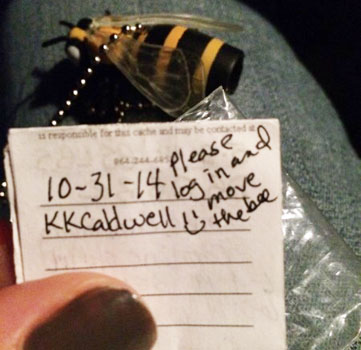 is responsible for this cache and may be contacted at
10-31-14
KKCaldwell
please
log in and
move
the bee